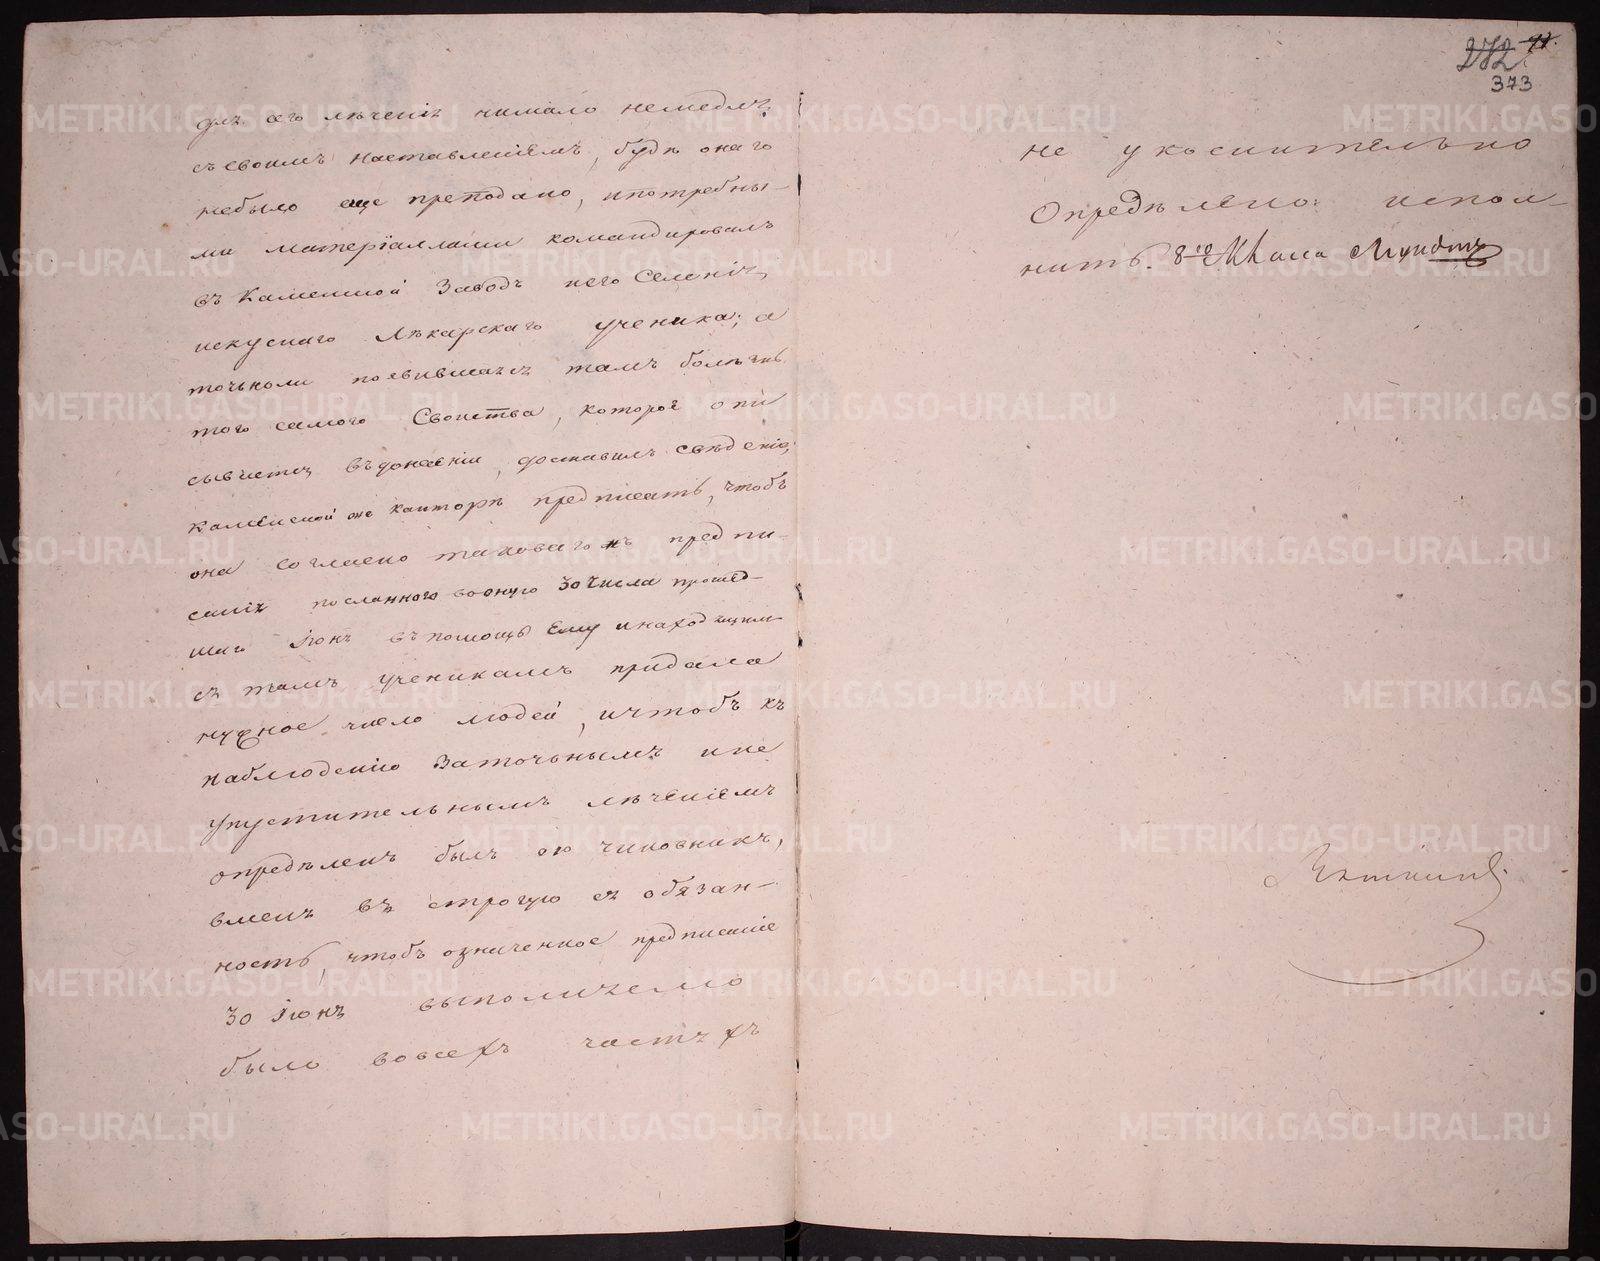 для его леченія нимало немедля
съ своимъ наставленіемъ, буде онаго
небыло еще преподано, ипотребны-
ми матеріаллами командировалъ
въ Каменной Заводъ иего Селенія
искуснаго Лѣкарскаго ученика; а
точноли появившаяся тамъ болѣзнь
того самого Свойства, которое опи
сывается въ донесеніи, доставилъ свѣденіе,
каменской же канторѣ предписать, чтобъ
она согласно таковагожъ предпи-
санія посланного воону 30 числа прошед-
шаго Іюня въ помощь Ему инаходящим-
ся тамъ ученикамъ придала
нужное число людей, ичтобъ къ
наблюденію Заточнымъ ине
упустительнымъ леченіемъ
опредѣленъ былъ ею чиновникъ,
вменя въ строгую ея обязан-
ность, чтобъ означенное предписаніе
30 Іюня выполняемо
было вовсехъ частяхъ
272 71.
373
не укоснительно
Определено: испол-
нить. 8го
METRIKI.GASO-URAL.RU